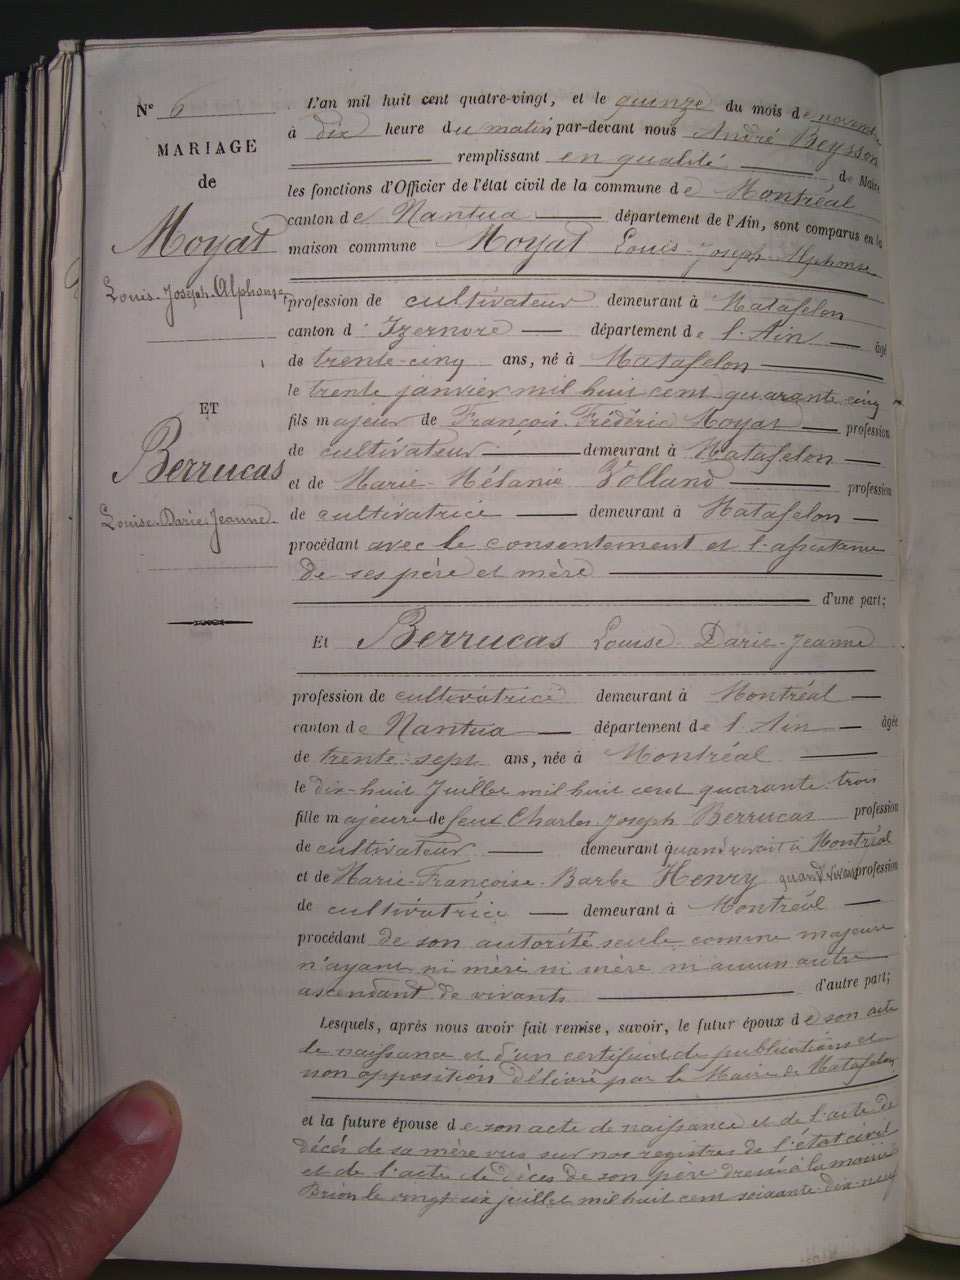 Nº 6
MARIAGE
de
Moyat
Louis-Joseph-Alphonse
ET
Berrucas
Louise-Darie-Jeanne
L'an mil huit cent quatre-vingt, et le quinze du mois de novembre
à dix heure du matin par-devant nous André Beysson
remplissant en qualité de Maire
les fonctions d'Officier de l'état civil de la commune de Montréal
canton de Nantua département de l'Ain, sont comparus en la
maison commune Moyat Louis-Joseph-Alphonse
profession de cultivateur demeurant à Matafelon
canton d'Izernore département de l'Ain âgé
de trente-cinq ans, né à Matafelon
le trente janvier mil huit cent quarante-cinq
fils majeur de François-Frédéric Moyat profession
de cultivateur demeurant à Matafelon
et de Marie-Mélanie Volland profession
de cultivatrice demeurant à Matafelon
procédant avec le consentement et l'assistance
de ses père et mère
d'une part;
Et Berrucas Louise-Darie-Jeanne
profession de cultivatrice demeurant à Montréal
canton de Nantua département de l'Ain âgée
de trente-sept ans, née à Montréal
le dix-huit Juillet mil huit cent quarante-trois
fille majeure de feux Charles Joseph Berrucas profession
de cultivateur demeurant quand vivait à Montréal
et de Marie-Françoise-Barbe Henry quand vivait profession
de cultivatrice demeurant à Montréal
procédant de son autorité seule comme majeure
n'ayant ni mère ni mère ni aucun autre
ascendant de vivants d'autre part;
Lesquels, après nous avoir fait remise, savoir, le futur époux de son acte
de naissance et d'un certificat de publications et
non opposition délivré par le Maire de Matafelon
et la future épouse de son acte de naissance et de l'acte de
décès de sa mère vus sur nos registres de l'état civil
et de l'acte de décès de son père dressé à la mairie
Brion le vingt six juillet mil huit cent soixante-dix-neuf